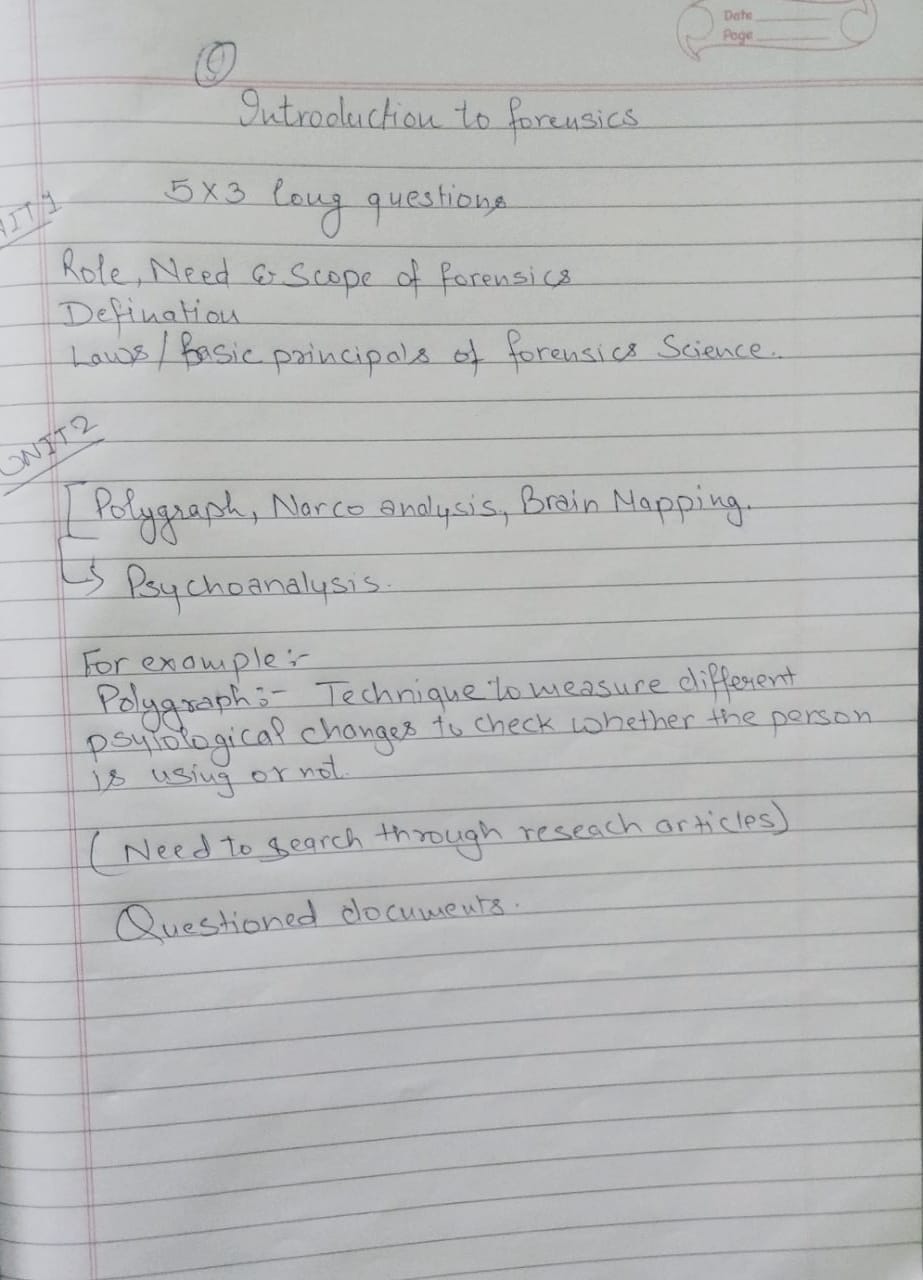 Date
Page
9
Introduction to forensics
5x3 long questions
UNIT 1
Role, Need & Scope of forensics
Defination
Laws / Basic principals of forensics Science.
UNIT 2
Polygraph, Narco analysis, Brain Mapping.
↳ Psychoanalysis.
For example :-
Polygraph :- Technique to measure different
psylological changes to check whether the person
is using or not.
(Need to search through reseach articles)
Questioned documents.